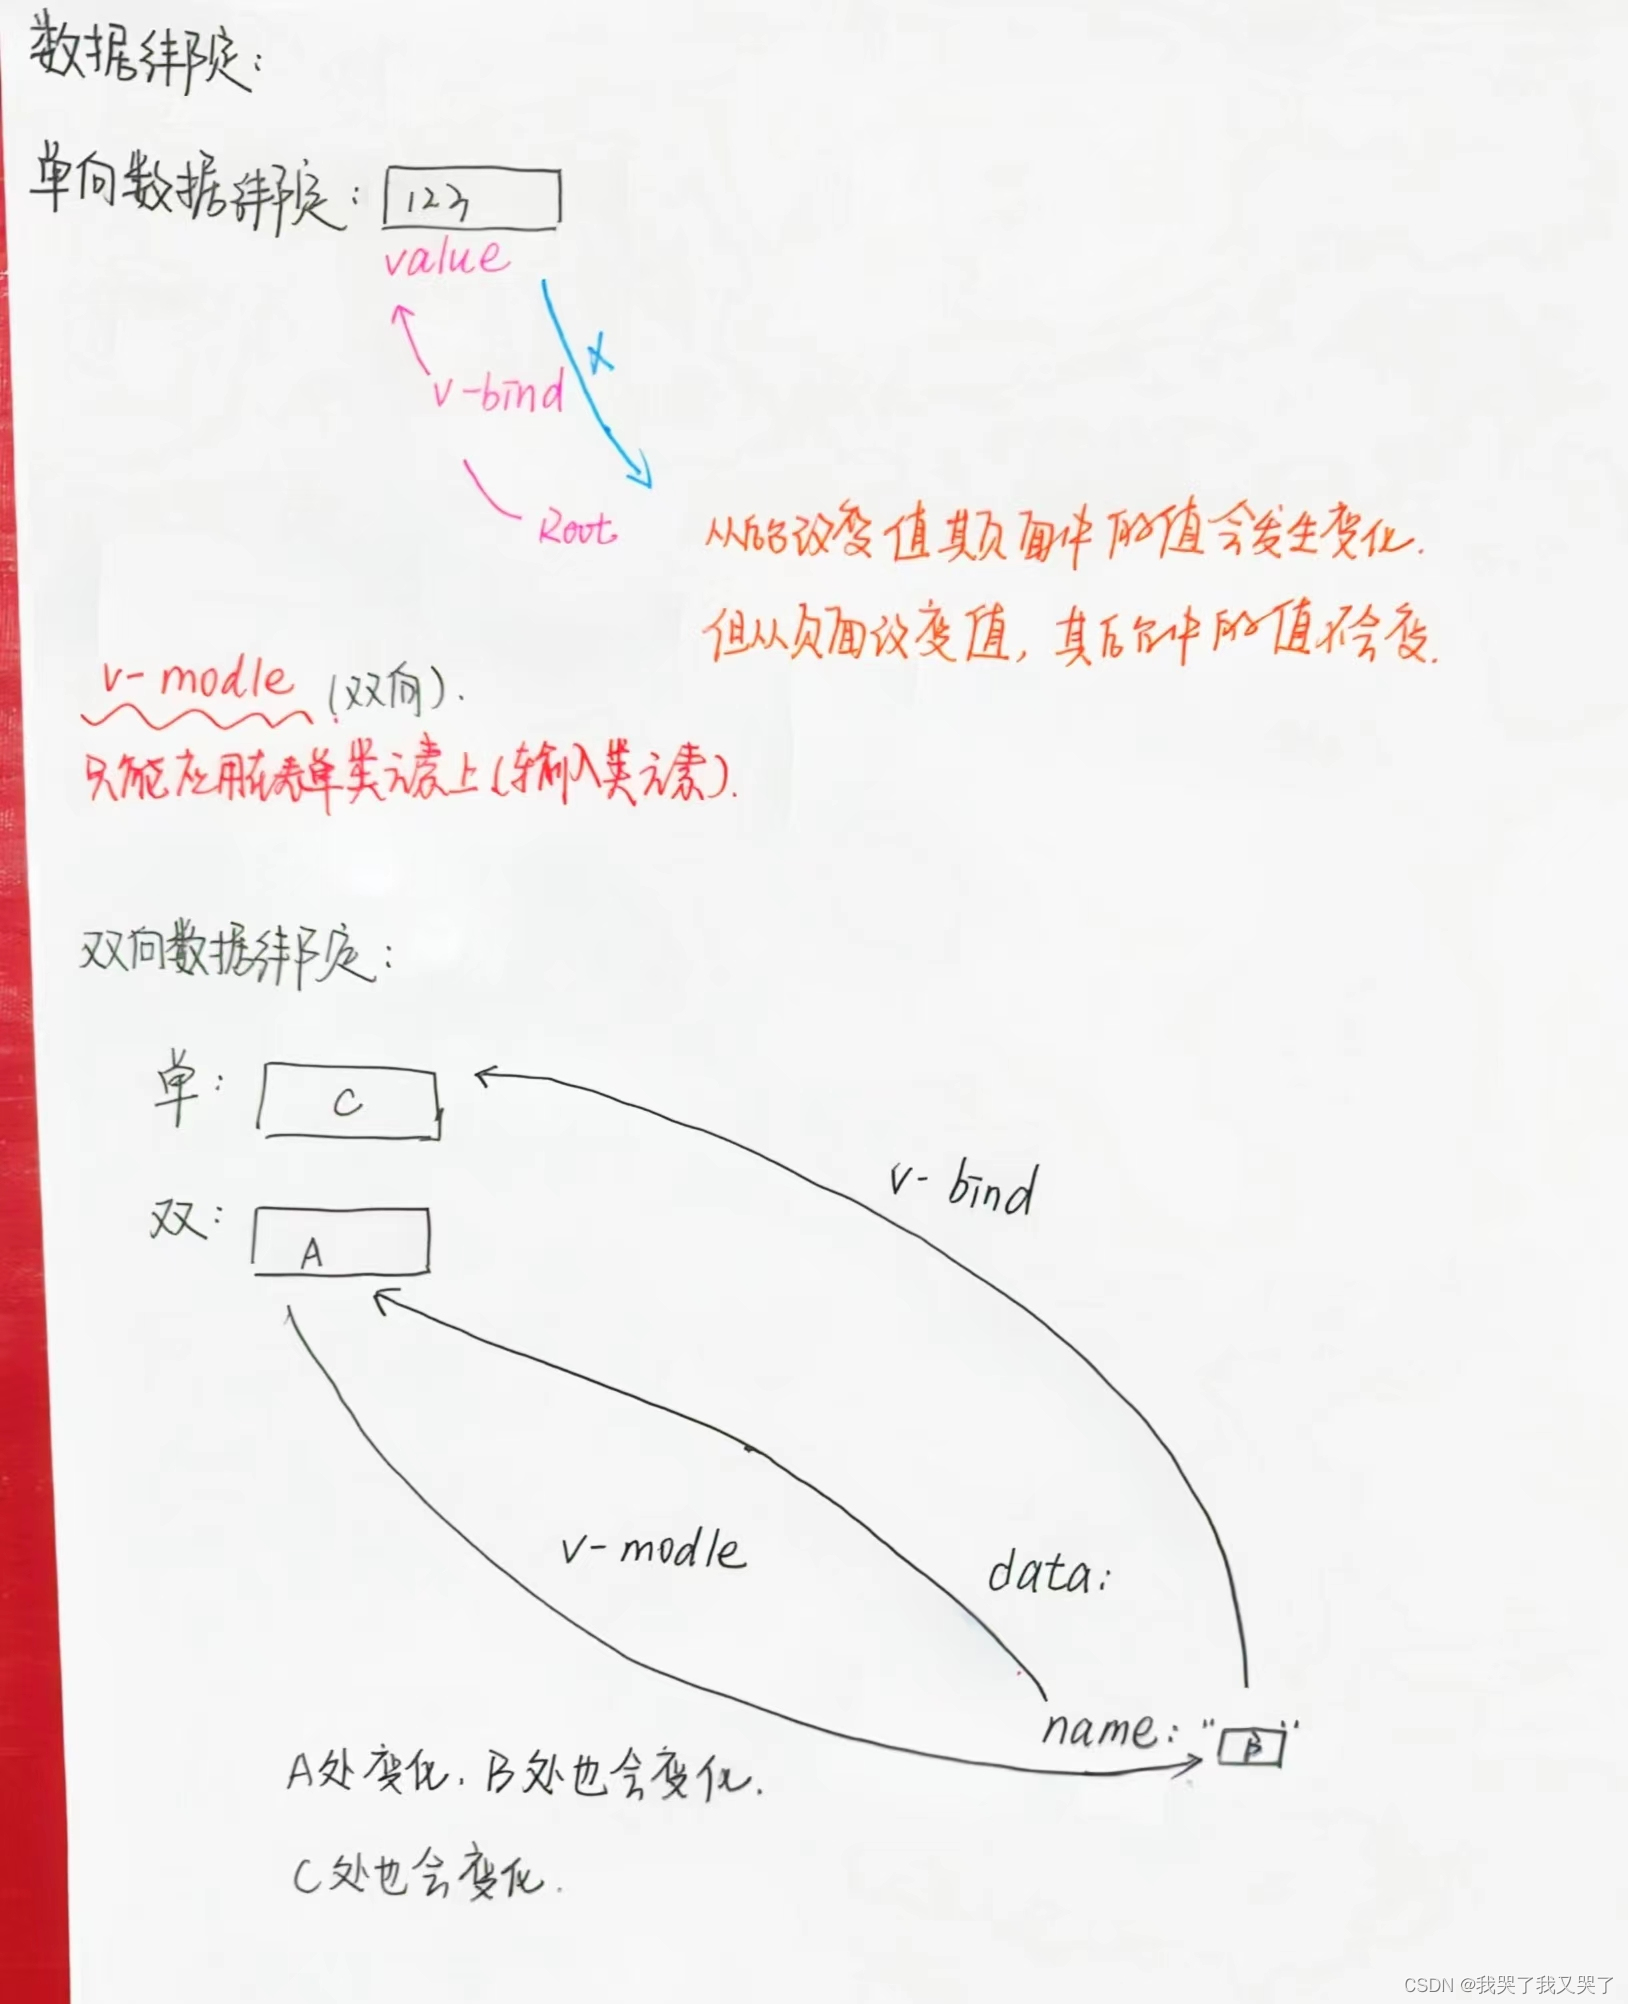 数据绑定：
单向数据绑定：
123
value
X
v-bind
Root
从后台改变值其页面中的值会发生变化.
但从页面改变值，其后台中的值不会变.
v-modle (双向).
只能应用在表单类元素上(输入类元素).
双向数据绑定：
单： C
v-bind
双： A
v-modle
data:
name: "B"
A处变化，B处也会变化.
C处也会变化.
CSDN @我哭了我又哭了